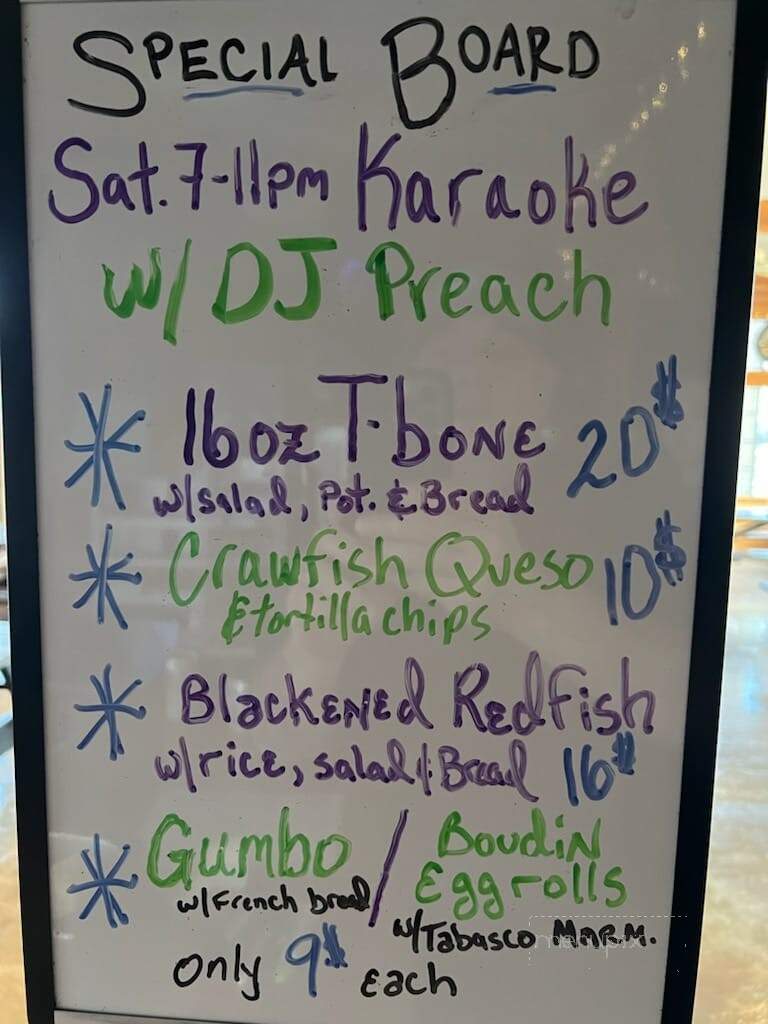 SPECIAL BOARD
Sat. 7-11pm Karaoke
w/ DJ Preach
* 16oz T-bone 20$
w/salad, Pot. & Bread
* Crawfish Queso 10$
& tortilla chips
* Blackened Redfish
w/rice, salad & Bread 16$
* Gumbo / Boudin
Egg rolls
w/French bread
w/Tabasco Mar.M.
only 9$ each
menupix